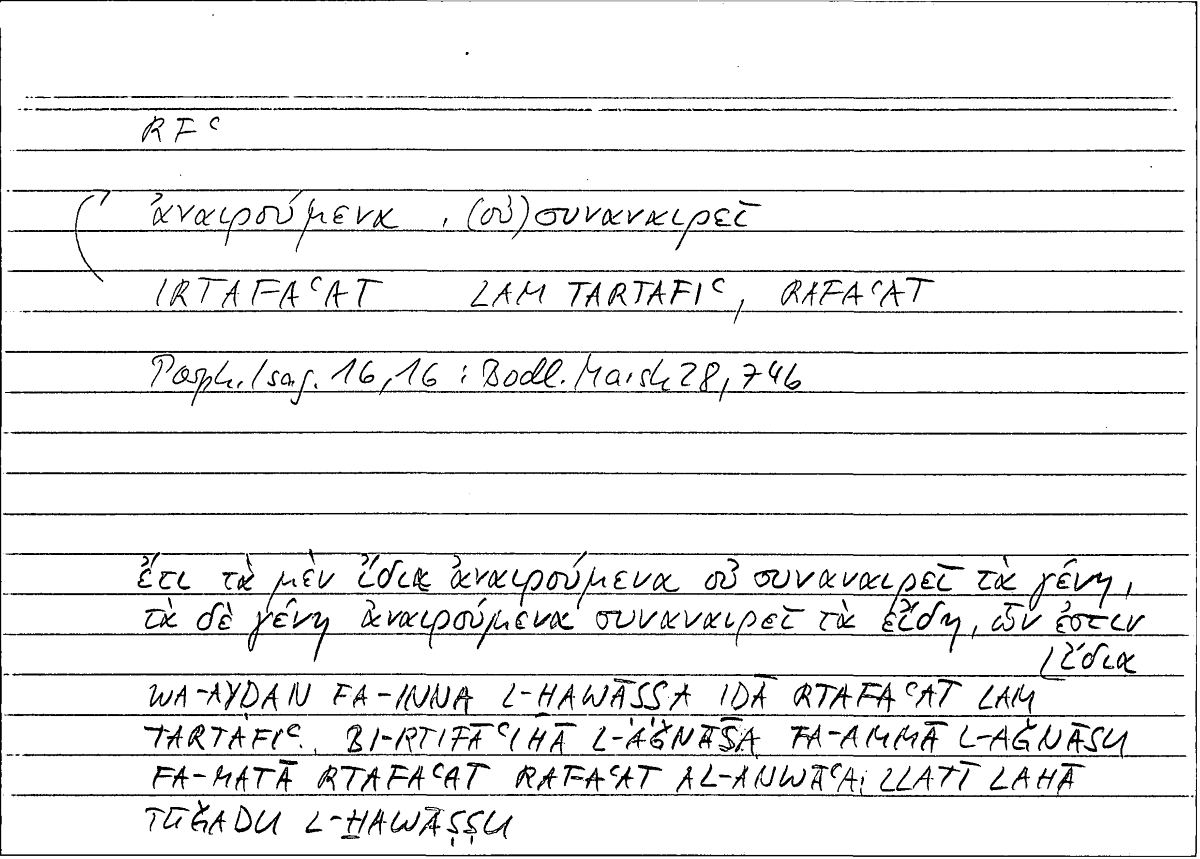 RFʿ
ἀναιρούμενα , (οὐ) συναναιρεῖ
IRTAFAʿAT LAM TARTAFIʿ, RAFAʿAT
Porph. Isag. 16,16 : Bodl. Marsh 28, 746
ἔτι τὰ μὲν ἴδια ἀναιρούμενα οὐ συναναιρεῖ τὰ γένη,
τὰ δὲ γένη ἀναιρούμενα συναναιρεῖ τὰ εἴδη, ὧν ἐστιν
ἴδια
WA-AYḌAN FA-INNA L-ḪAWĀṢṢA IḎĀ RTAFAʿAT LAM
TARTAFIʿ BI-RTIFĀʿIHĀ L-AǦNĀSA FA-AMMĀ L-AǦNĀSU
FA-MATĀ RTAFAʿAT RAFAʿAT AL-ANWĀʿA LLATĪ LAHĀ
TŪǦADU L-ḪAWĀṢṢU